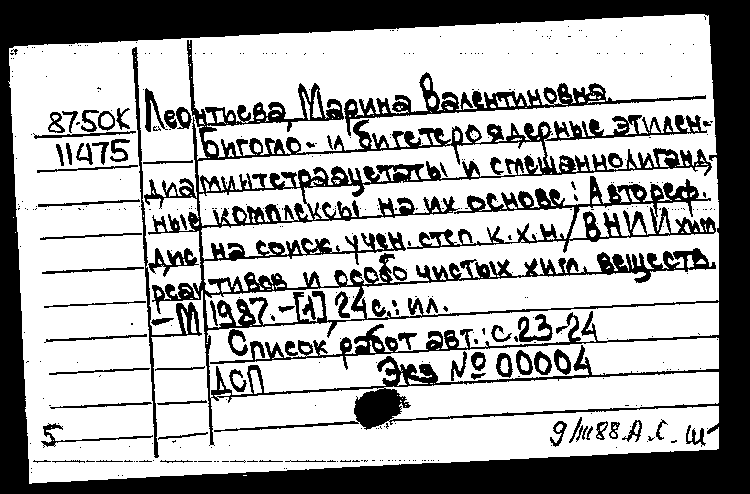 87-50К
11475
Леонтьева, Марина Валентиновна.
Бигомо- и бигетероядерные этилен-
диаминтетраацетаты и смешаннолиганд-
ные комплексы на их основе: Автореф.
дис на соиск. учен. степ. к.х.н./ВНИИ хим.
реактивов и особо чистых хим. веществ.
-М 1987.-[1] 24 с.: ил.
Список работ авт.: с.23-24
ДСП Экз № 00004
5
9/III 88. А.С.